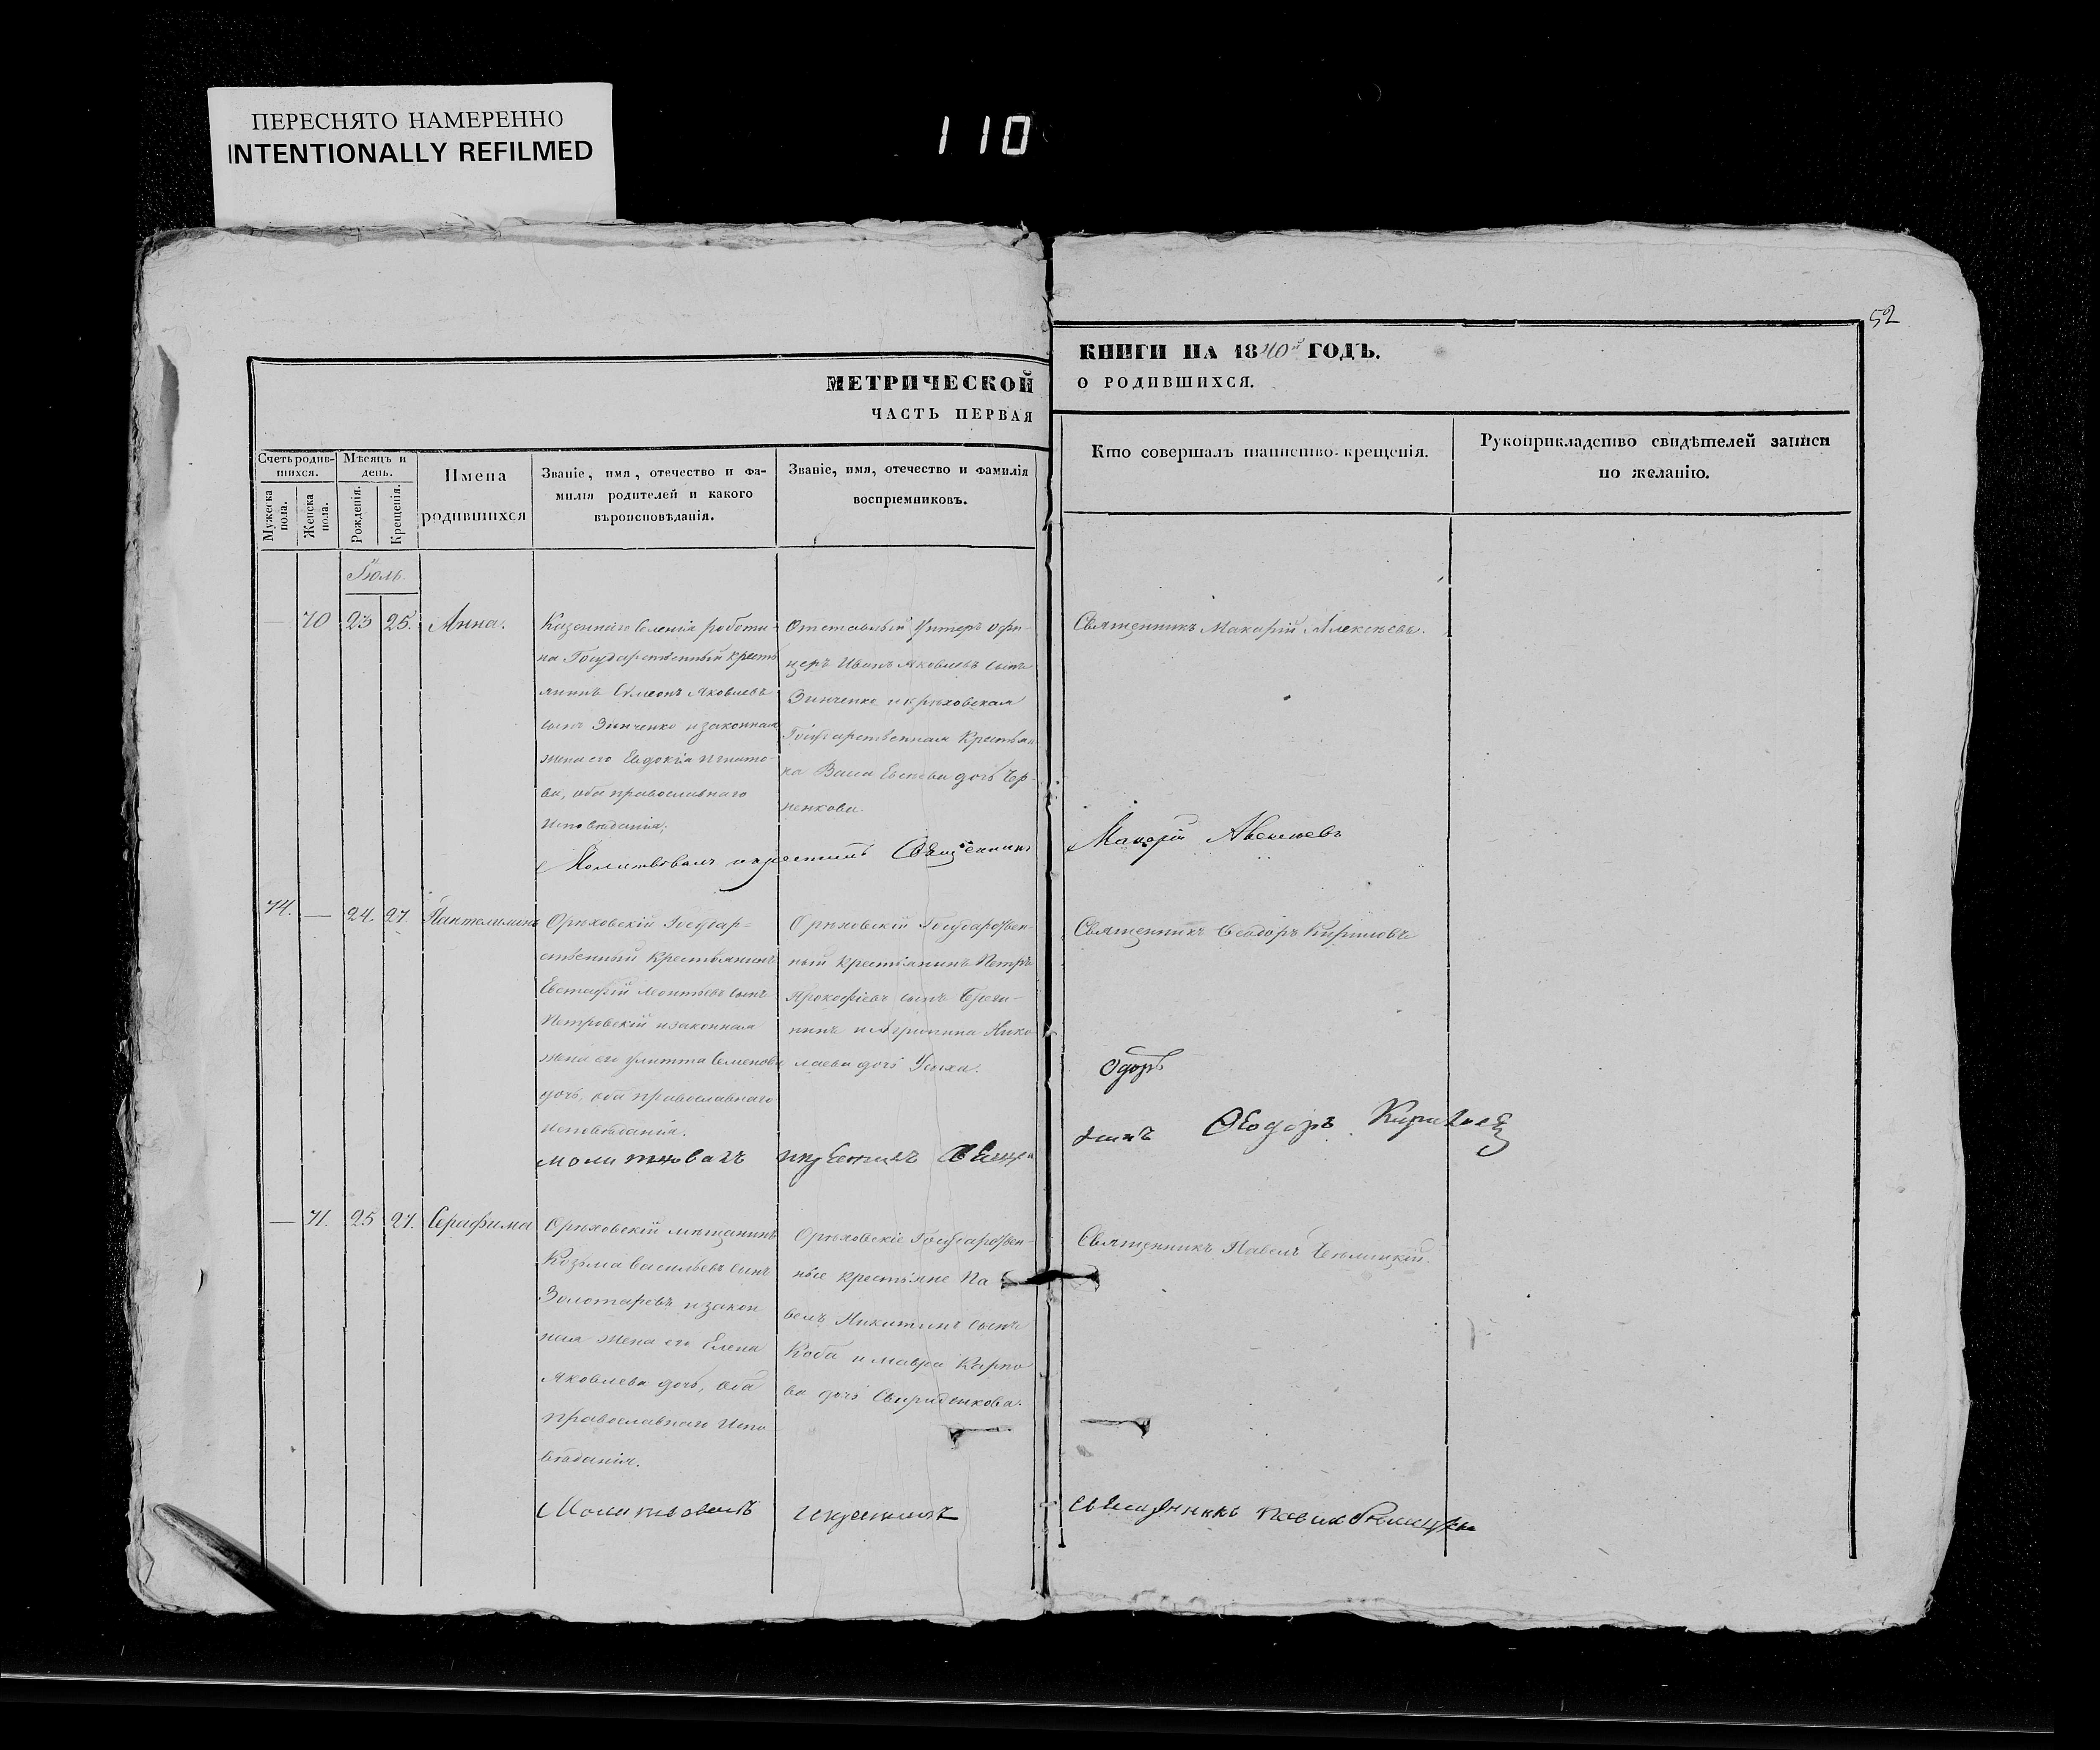 ПЕРЕСНЯТО НАМЕРЕННО
INTENTIONALLY REFILMED
110
52
МЕТРИЧЕСКОЙ
ЧАСТЬ ПЕРВАЯ
КНИГИ НА 1840й ГОДЪ.
О РОДИВШИХСЯ.
Счетъ родив-
шихся.
Мужеска
пола.
Женска
пола.
Мѣсяцъ и
день.
Рожденія.
Крещенія.
Имена
родившихся
Званіе, имя, отечество и фа-
милія родителей и какого
вѣроисповѣданія.
Званіе, имя, отечество и фамилія
воспріемниковъ.
Кто совершалъ таинство крещенія.
Рукоприкладство свидѣтелей записи
по желанію.
Іюль.
— 70 23 25. Анна.
Казеннаго селенія работи-
на Государственный кресть
янинъ Симеонъ Яковлевъ
сынъ Зинченко и законная
жена его Евдокія Игнато-
ва, оба православнаго
Исповѣданія;
Отставный Унтеръ офи-
церъ Иванъ Яковлевъ сынъ
Зинченко и орѣховская
Государственная Крестьян
ка Васса дочь Чер-
ненкова.
Священникъ Макарій Алексѣевъ.
Молитвовалъ и крестилъ Священникъ
Макарій Алексѣевъ
74. — 24. 27. Пантелимонъ
Орѣховскій Государ=
ственный Крестьянинъ
Евстафій Леонтьевъ сынъ
Петровскій и законная
жена его Улитта Семенова
дочь, оба православнаго
исповѣданія.
Орѣховскій Государствен-
ный крестьянинъ Петръ
Прокофіевъ сынъ
и Агрипина Нико
лаева дочь
Священникъ Ѳеодоръ Кириловъ
одоръ
молитвовалъ и крестилъ Свяще
никъ Ѳеодоръ Кириловъ
— 71. 25 27. Серафима
Орѣховскій мѣщанинъ
Козьма Васильевъ сынъ
Золотаревъ и закон
ная жена его Елена
Яковлева дочь, оба
православнаго Испо
вѣданія.
Орѣховскіе Государствен-
ные крестьяне Па
велъ Никитинъ сынъ
Коба и Мавра Карпо
ва дочь Свириденкова.
Священникъ Павелъ
Молитвовалъ и крестилъ
священникъ Павелъ